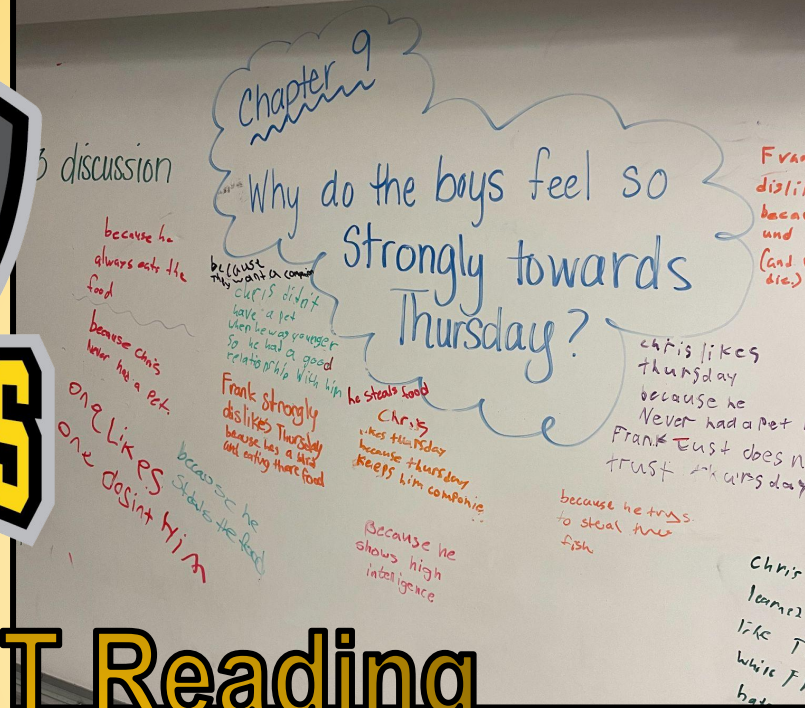 Chapter 9
discussion
Why do the boys feel so
Strongly towards
Thursday?
because he
always eats the
food
because Chris
Never had a pet.
one Likes
one dosint Him
because
They want a
chris didn't
have a pet
when he was younger
so he had a good
relationship with him
Frank Strongly
dislikes Thursday
because hes a bird
and eating there food
because he
the food
he steals food
Chris
likes thursday
because thursday
keeps him companie
Because he
shows high
inteligence
because he trys
to steal
fish
chris likes
thursday
because he
Never had a Pet
Frank does
trust
because
und
(and
die.)
Chris
like T
while
T Reading
S